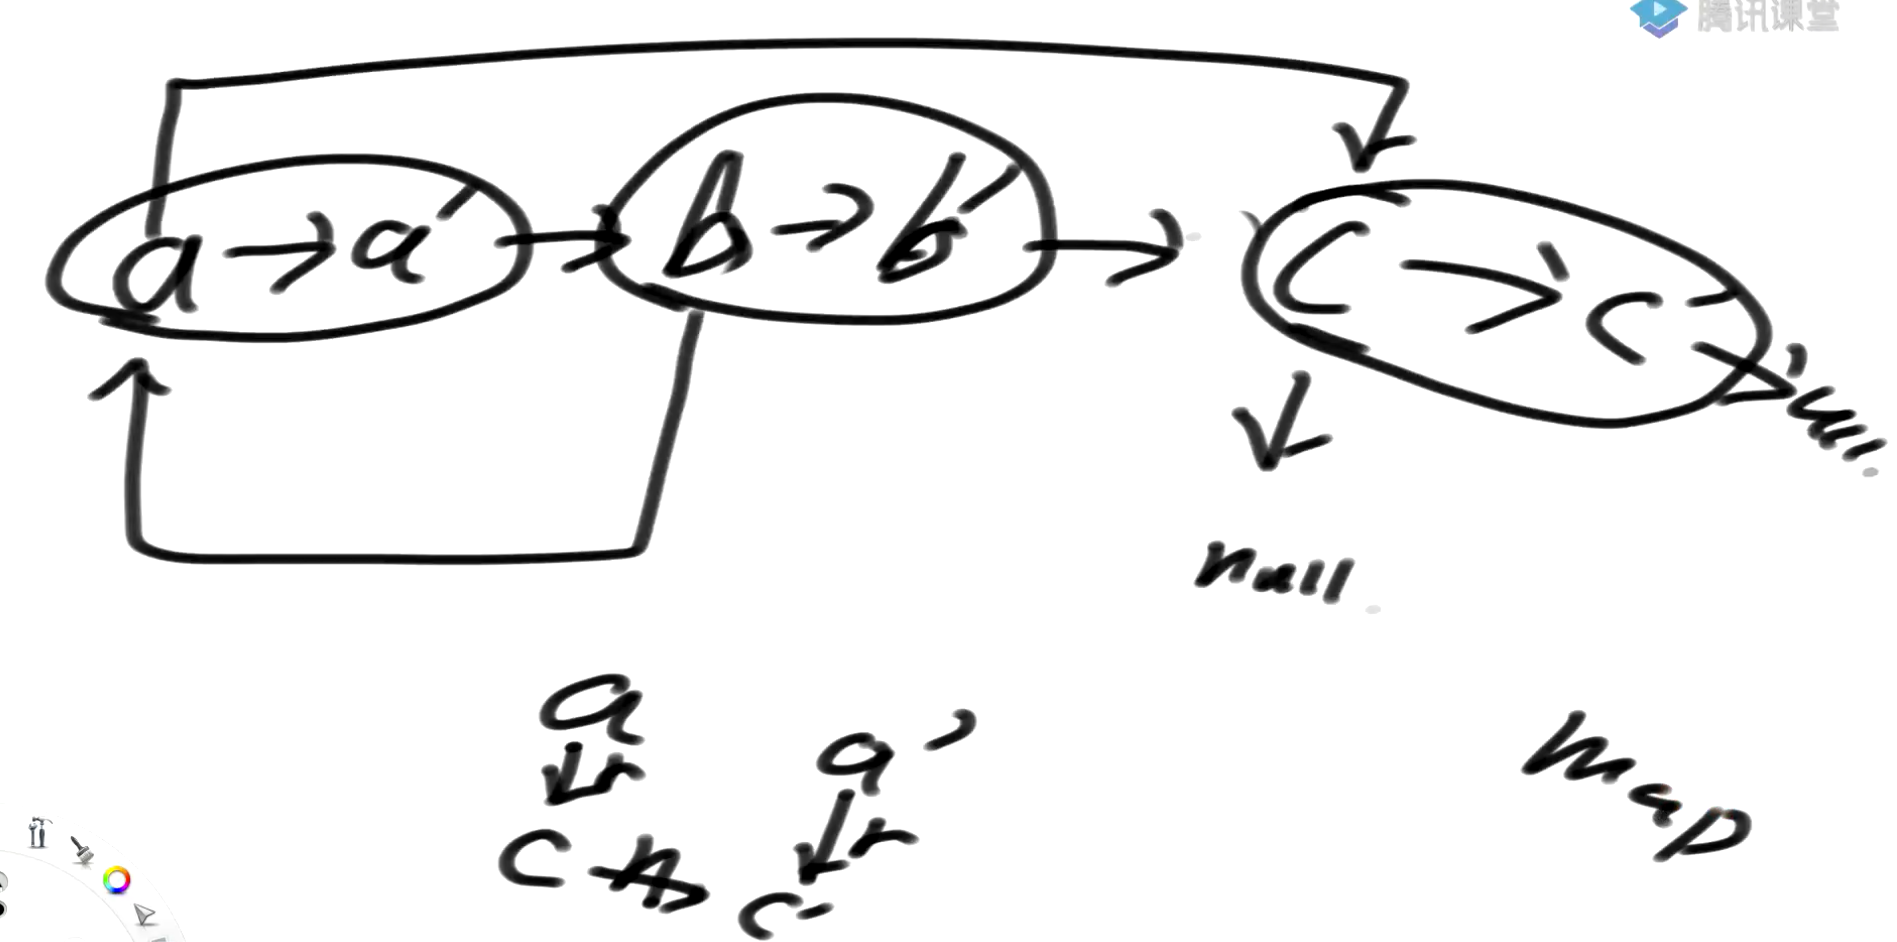 腾讯课堂
a → a′ → b → b′ → c → c′ →
null
a
↓ r
c n→
a′
↓ r
c′
map